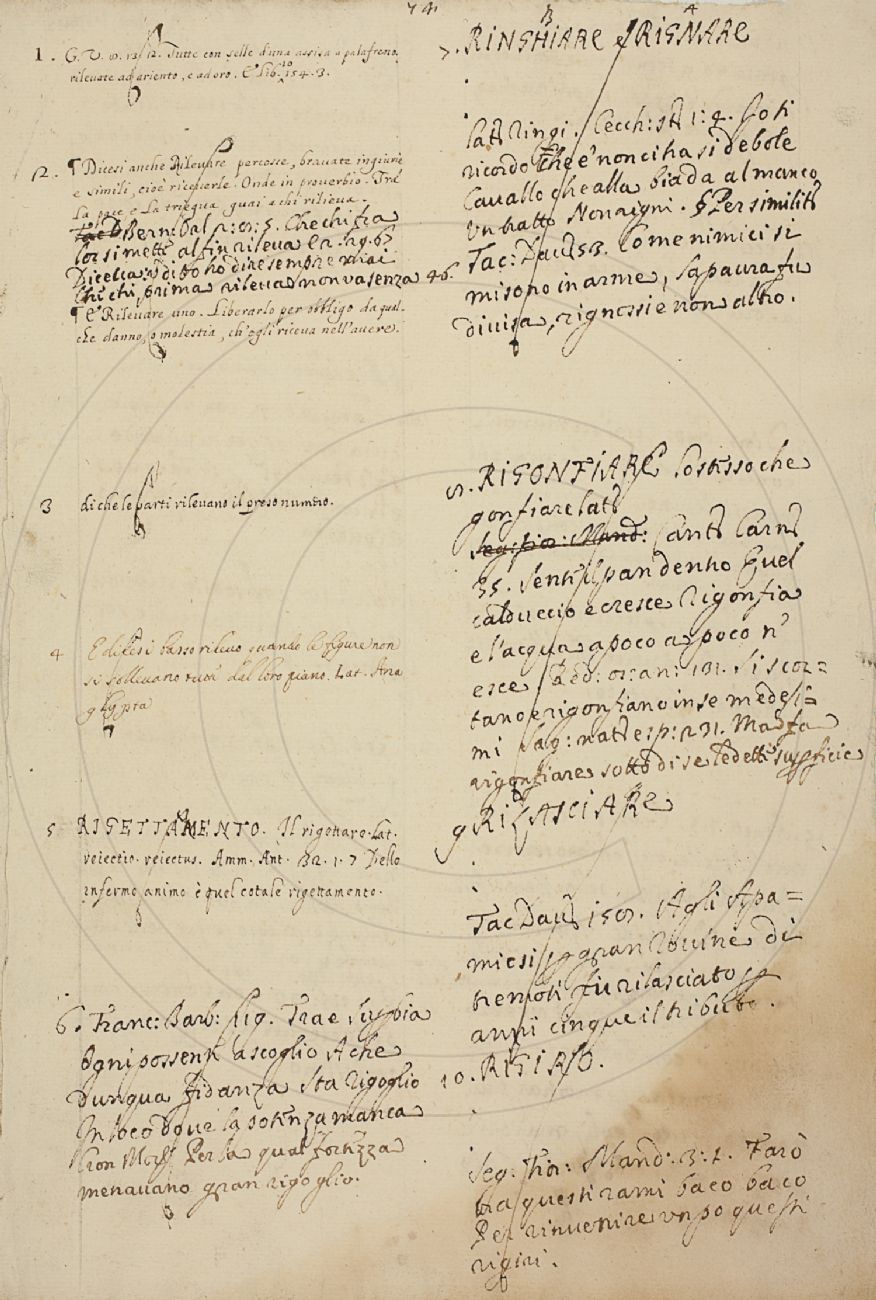 741
1. G. V. 10. 12. Tutte con selle d'una assisa a palafreno,
rilevate ad ariento, e ad oro. E lib. 10 154. 3.
2. ¶ Dicesi anche Rilevare percosse, bravate ingiurie
e simili, cioè riceverle. Onde in proverbio. Tra
La pace e La triegua, guai a chi rilieva.
Bern: Che chi fra
lor si mette al fin rileva
ho dire sempre mai
Che chi prima rileva non va senza
¶ E Rilevare uno. Liberarlo per obbligo da qual-
che danno, o molestia, ch'egli riceva nell'avere.
3 di che le parti rilevano il preso numero.
4 E dicesi basso rilievo quando le figure non
si sollevano tutte dal loro piano. Lat. Ana
glypta
5 RIGETTAMENTO. Il rigettare. Lat.
reiectio. reiectus. Amm. Ant. 32. 1. 7 Dello
infermo animo è quel cotale rigettamento.
6. Franc: Barb: Trae superbia
Ogni possente a scoglio A che
Dunqua fidanza sta rigoglio
In loco dove la potenza manca
Per la qual fortezza
menavano gran rigoglio.
B A
7. RINGHIARE RIGNARE
lat Ringi. Cecch: 1: 4. So ti
ricordo che e' non ci ha si debole
Cavallo che alla biada al manco
Un tratto Non rigni. § Per similit
46. Tac: Dav 53. Come nimici si
misono in arme, la paura fu
divisa, rignossi e non altro.
8. RIGONFIARE lo stesso che
gonfiare lat
Seg: fior: Mand: Cant Carn
35. Senti il pan dentro Quel
calduccio e cresce Rigonfia
e l'acqua a poco a poco n'
esce Red: oss: an: 131. Si scor=
tano e rigonfiano in se medesi=
mi Sag: nat esp: 231.
rigonfiare sotto di se le dette superficie
9 RILASCIARE
Tac Dav 150. Agli Apa=
miesi per gran Rovine di
tremoti fu rilasciato per
anni cinque il tributo.
10. RIGIRO.
Seg: Fior: Mand: 3: 2. Farò
tra questi rami baco baco
Per rinvenire un po questi
rigiri.